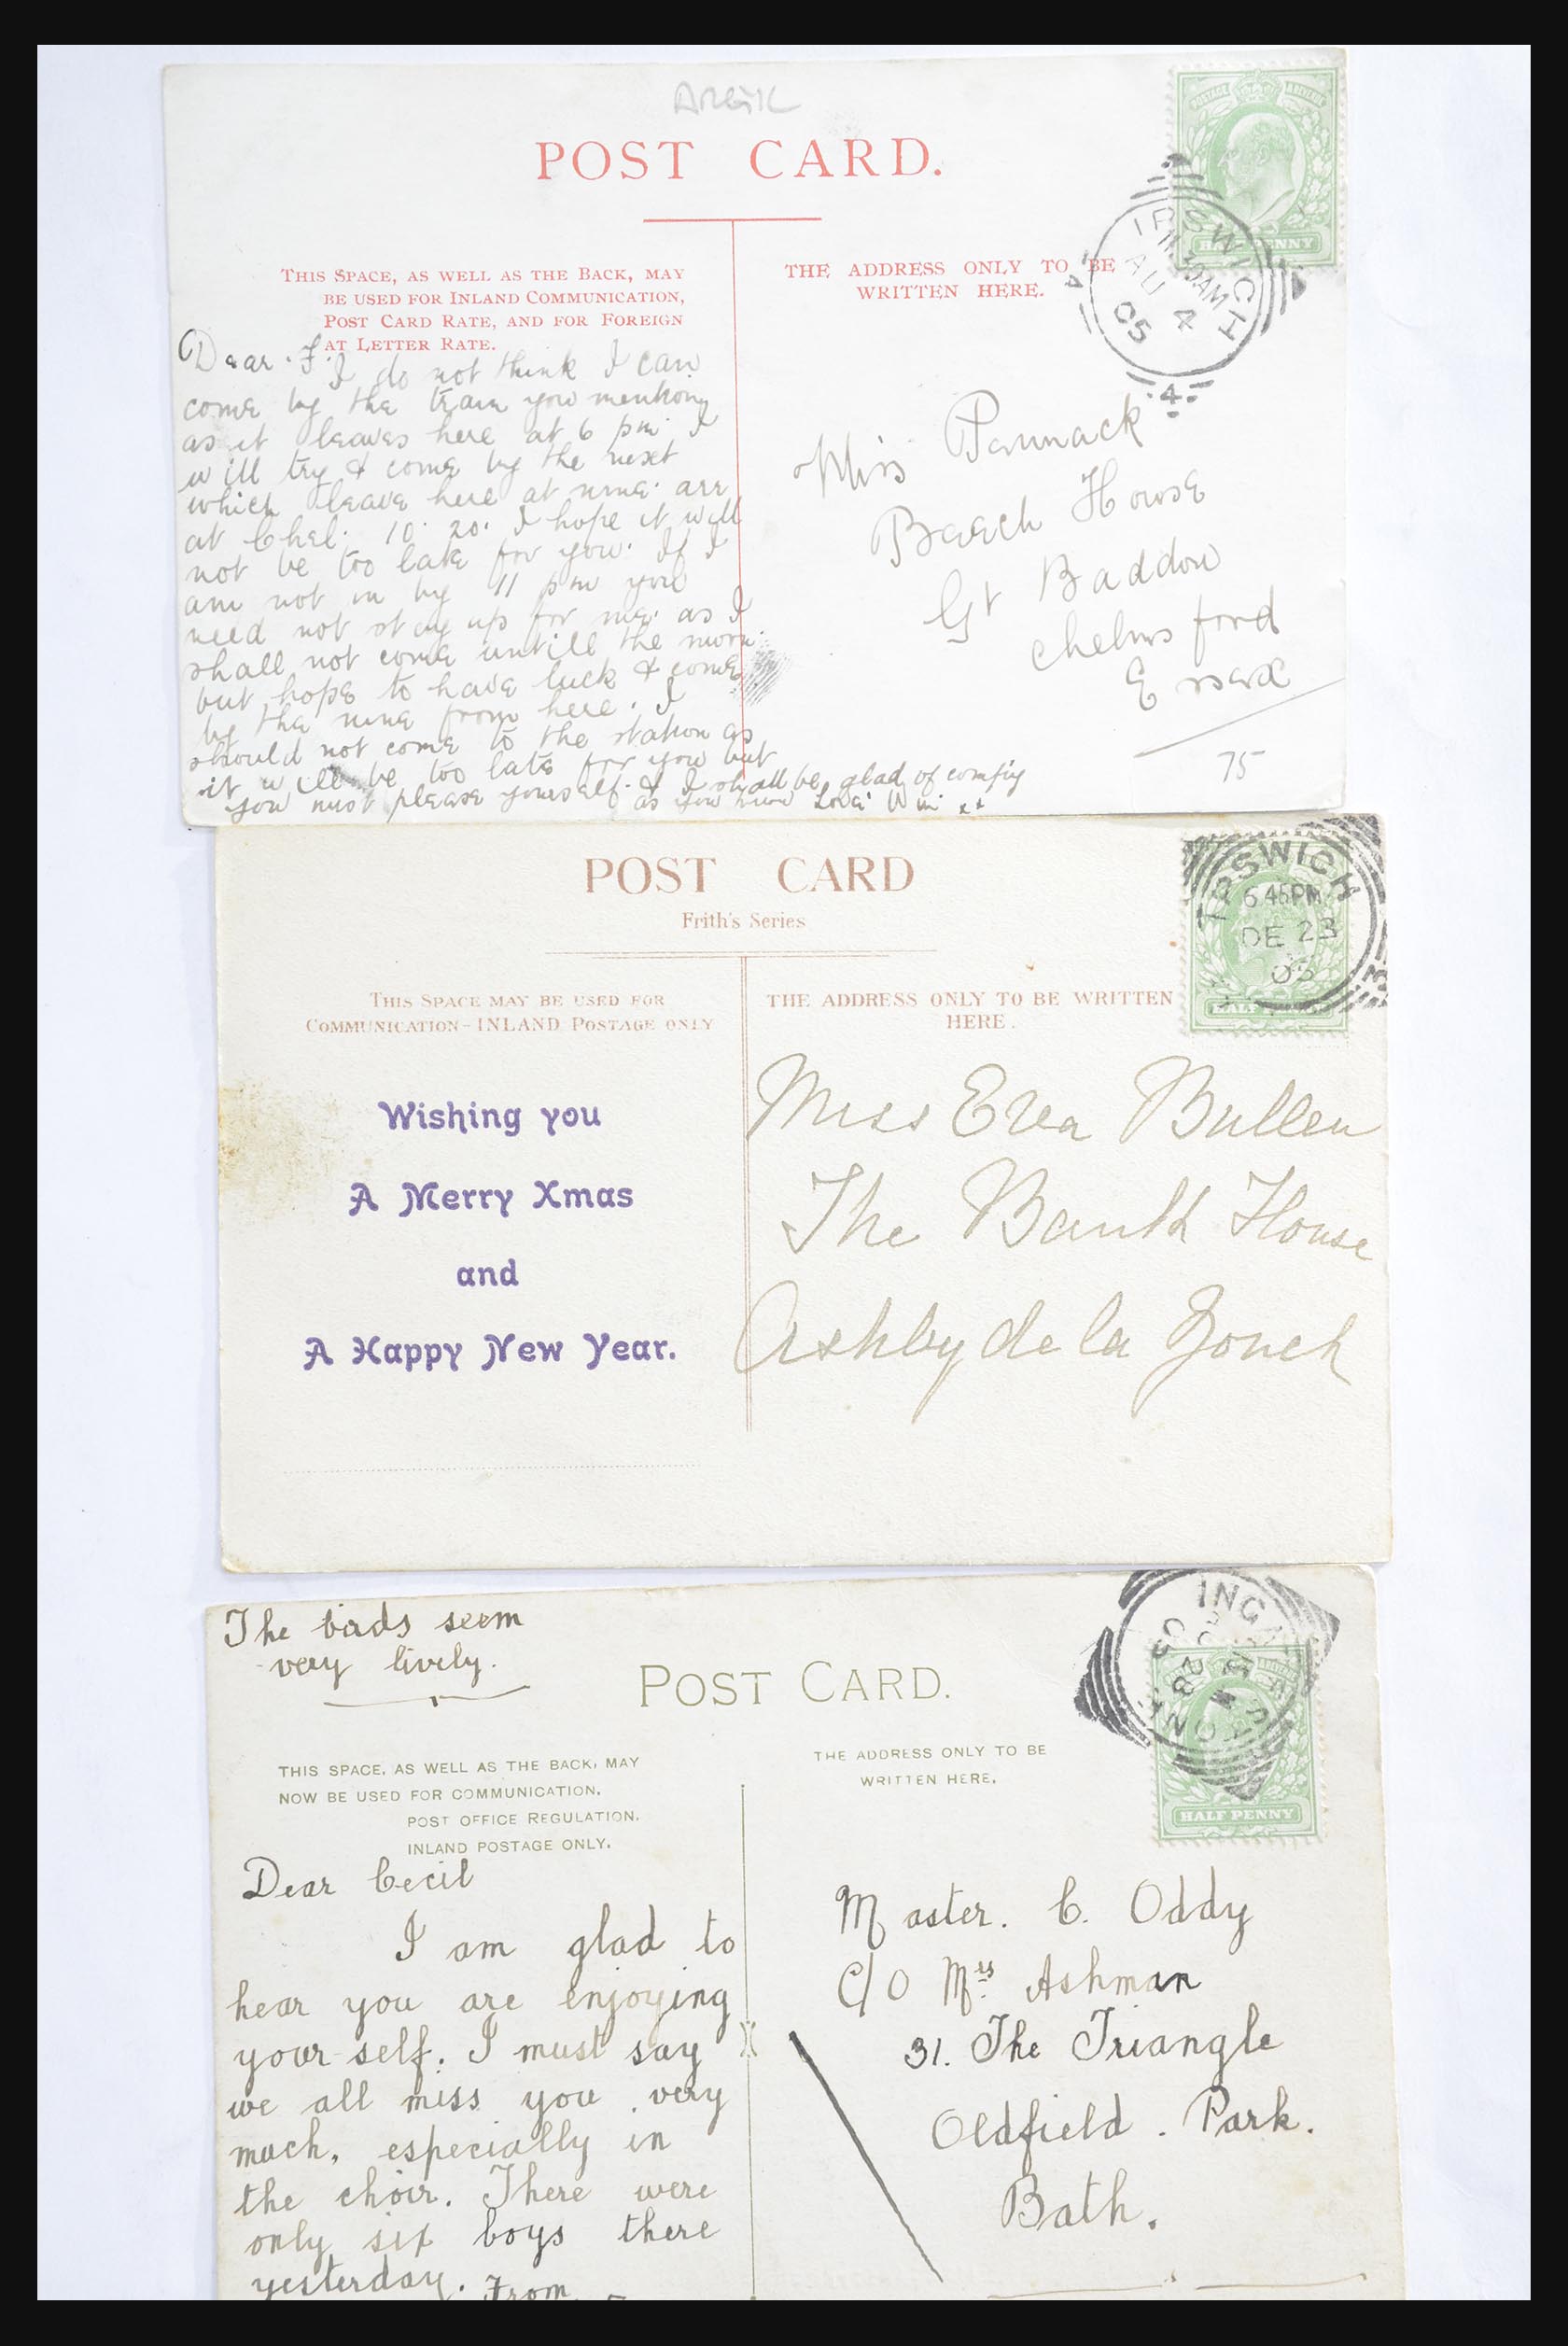 POST CARD.
THIS SPACE, AS WELL AS THE BACK, MAY
BE USED FOR INLAND COMMUNICATION,
POST CARD RATE, AND FOR FOREIGN
AT LETTER RATE.
THE ADDRESS ONLY TO BE
WRITTEN HERE.
IPSWICH
11.30AM
AU 4
05
HALF PENNY
Dear F. I do not think I can
come by the train you mention
as it leaves here at 6 pm. I
will try & come by the next
which leave here at nine. arr
at Chel. 10. 20. I hope it will
not be too late for you. If I
am not in by 11 pm you
need not stay up for me. as I
shall not come untill the morn.
but hope to have luck & come
by the nine from here. I
should not come to the station as
it will be too late for you but
you must please yourself. & I shall be glad of comp'y
as you know Love Win xx
Miss Pannack
Beech House
Gt Baddow
Chelmsford
Essex
75
POST CARD
Frith's Series
THIS SPACE MAY BE USED FOR
COMMUNICATION-INLAND POSTAGE ONLY
THE ADDRESS ONLY TO BE WRITTEN
HERE.
IPSWICH
6.45PM
DE 23
05
HALF
Wishing you
A Merry Xmas
and
A Happy New Year.
Miss Eva Bullen
The Bank House
Ashby de la Zouch
The birds seem
very lively.
POST CARD.
THIS SPACE, AS WELL AS THE BACK, MAY
NOW BE USED FOR COMMUNICATION.
POST OFFICE REGULATION.
INLAND POSTAGE ONLY.
THE ADDRESS ONLY TO BE
WRITTEN HERE.
HALF PENNY
Dear Cecil
I am glad to
hear you are enjoying
your self. I must say
we all miss you very
much, especially in
the choir. There were
only six boys there
yesterday. From
Master. C. Oddy
C/O Mrs Ashman
31. The Triangle
Oldfield. Park.
Bath.